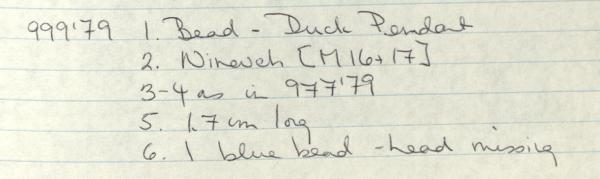 999'79 1. Bead - Duck Pendant
2. Nineveh [M16+17]
3-4 as in 977'79
5. 1.7 cm long
6. 1 blue bead - head missing